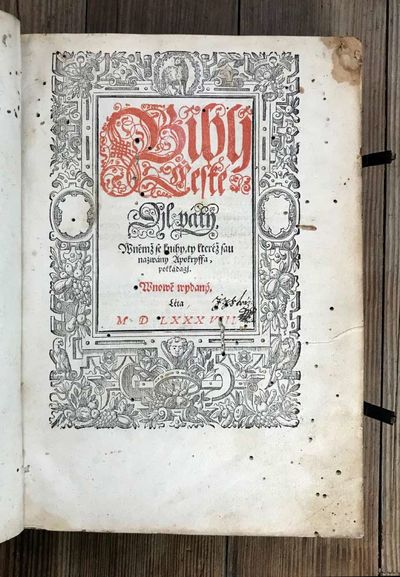 Biblj
Cžeské
Djl pátý,
Wněmž se knihy, ty kteréž sau
nazwány Apokryffa,
pokládagj.
Wnowě wydaný.
Léta
M D LXXXVIII